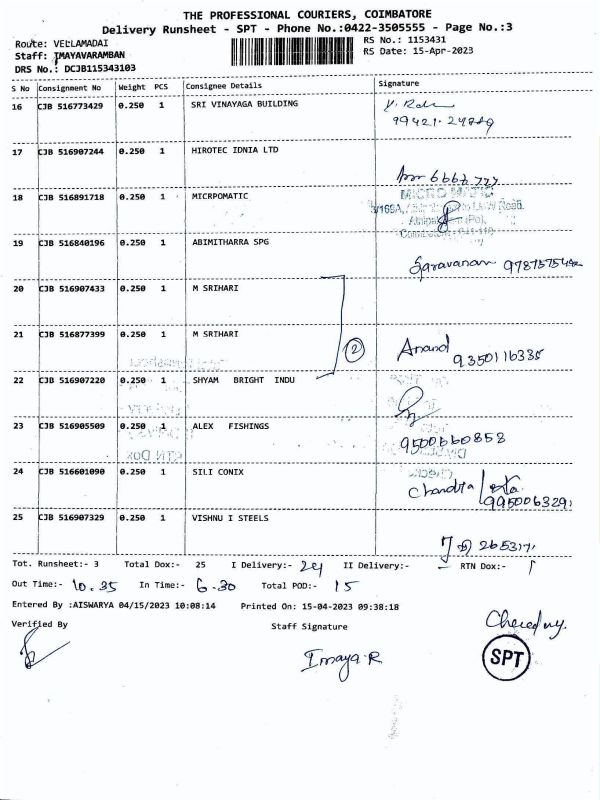 THE PROFESSIONAL COURIERS, COIMBATORE
Delivery Runsheet - SPT - Phone No.:0422-3505555 - Page No.:3
Route: VELLAMADAI RS No.: 1153431
Staff: IMAYAVARAMBAN RS Date: 15-Apr-2023
DRS No.: DCJB115343103
S No Consignment No Weight PCS Consignee Details Signature
16 CJB 516773429 0.250 1 SRI VINAYAGA BUILDING
17 CJB 516907244 0.250 1 HIROTEC IDNIA LTD
18 CJB 516891718 0.250 1 MICRPOMATIC
MICRO MATIC
19 CJB 516840196 0.250 1 ABIMITHARRA SPG
Saravanan
20 CJB 516907433 0.250 1 M SRIHARI
21 CJB 516877399 0.250 1 M SRIHARI
2 Anand
9350116335
22 CJB 516907220 0.250 1 SHYAM BRIGHT INDU
23 CJB 516905509 0.250 1 ALEX FISHINGS
9500660858
24 CJB 516601090 0.250 1 SILI CONIX
Chandra
9950063291
25 CJB 516907329 0.250 1 VISHNU I STEELS
Tot. Runsheet:- 3 Total Dox:- 25 I Delivery:- 24 II Delivery:- — RTN Dox:- 1
Out Time:- 10.35 In Time:- 6.30 Total POD:- 15
Entered By :AISWARYA 04/15/2023 10:08:14 Printed On: 15-04-2023 09:38:18
Verified By Staff Signature
Imaya R
SPT